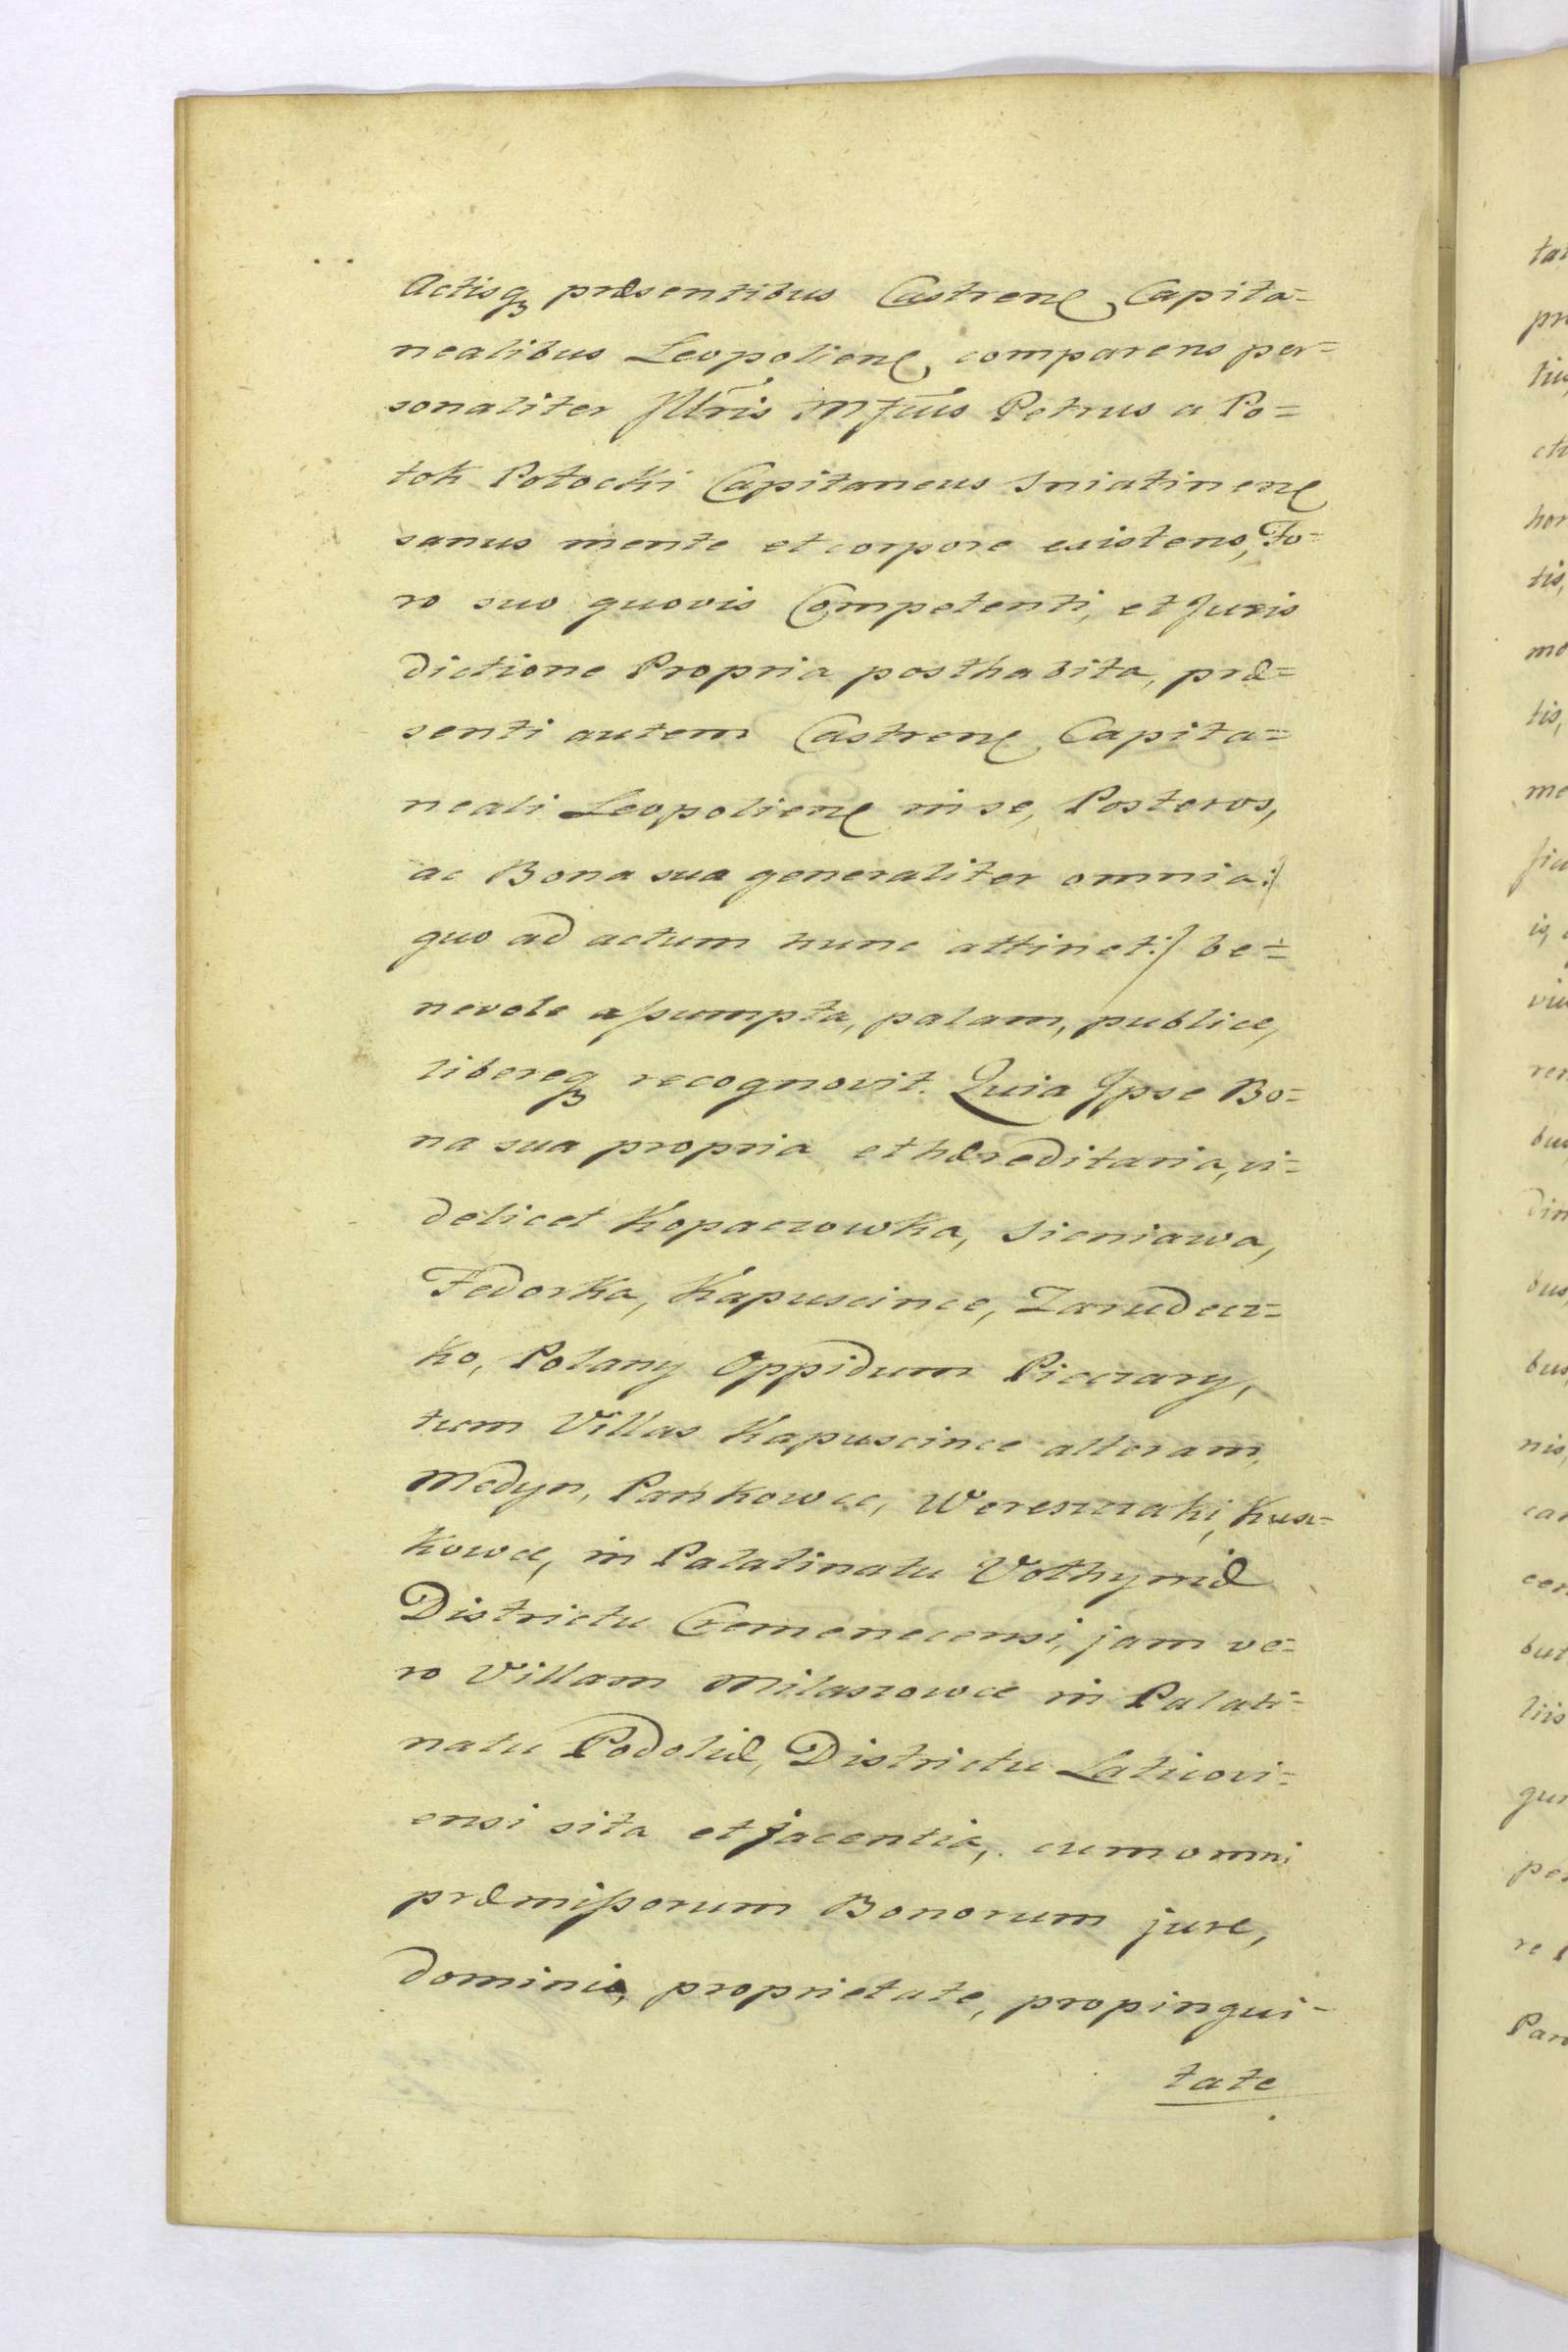 Actisq₃ præsentibus Castrenẽ, Capita=
nealibus Leopolienẽ, comparens per=
sonaliter Jllris Mfcus Petrus a Po=
tok Potocki Capitaneus Sniatinenẽ
sanus mente et corpore existens, Fo=
ro suo quovis Competenti, et Juris
dictione Propria posthabita, præ=
senti autem Castrenẽ, Capita=
neali Leopolienẽ in se, Posteros,
ac Bona sua generaliter omnia:/
quo ad actum hunc attinet:/ be=
nevole assumpta, palam, publice,
libereq₃ recognovit. Quia Jpse Bo=
na sua propria et hæreditaria, vi=
delicet Kopaczowka, Sieniawa,
Fedorka, Kapuscince, Zarudecz=
ko, Polany Oppidum Pieczary,
tum Villas Kapuscince alteram,
Medyn, Pańkowce, Wereszczaki, Kusz=
kowce, in Palatinatu Volhyniæ
Districtu Cremenecensi, jam ve=
ro Villam Milaszowce in Palati=
natu Podoliæ, Districtu Laticovi=
ensi sita et jacentia, cum omni
præmissorum Bonorum jure,
dominio, proprietate, propinqui-
tate
tis,
mo
tis,
bus
bus,
nis,